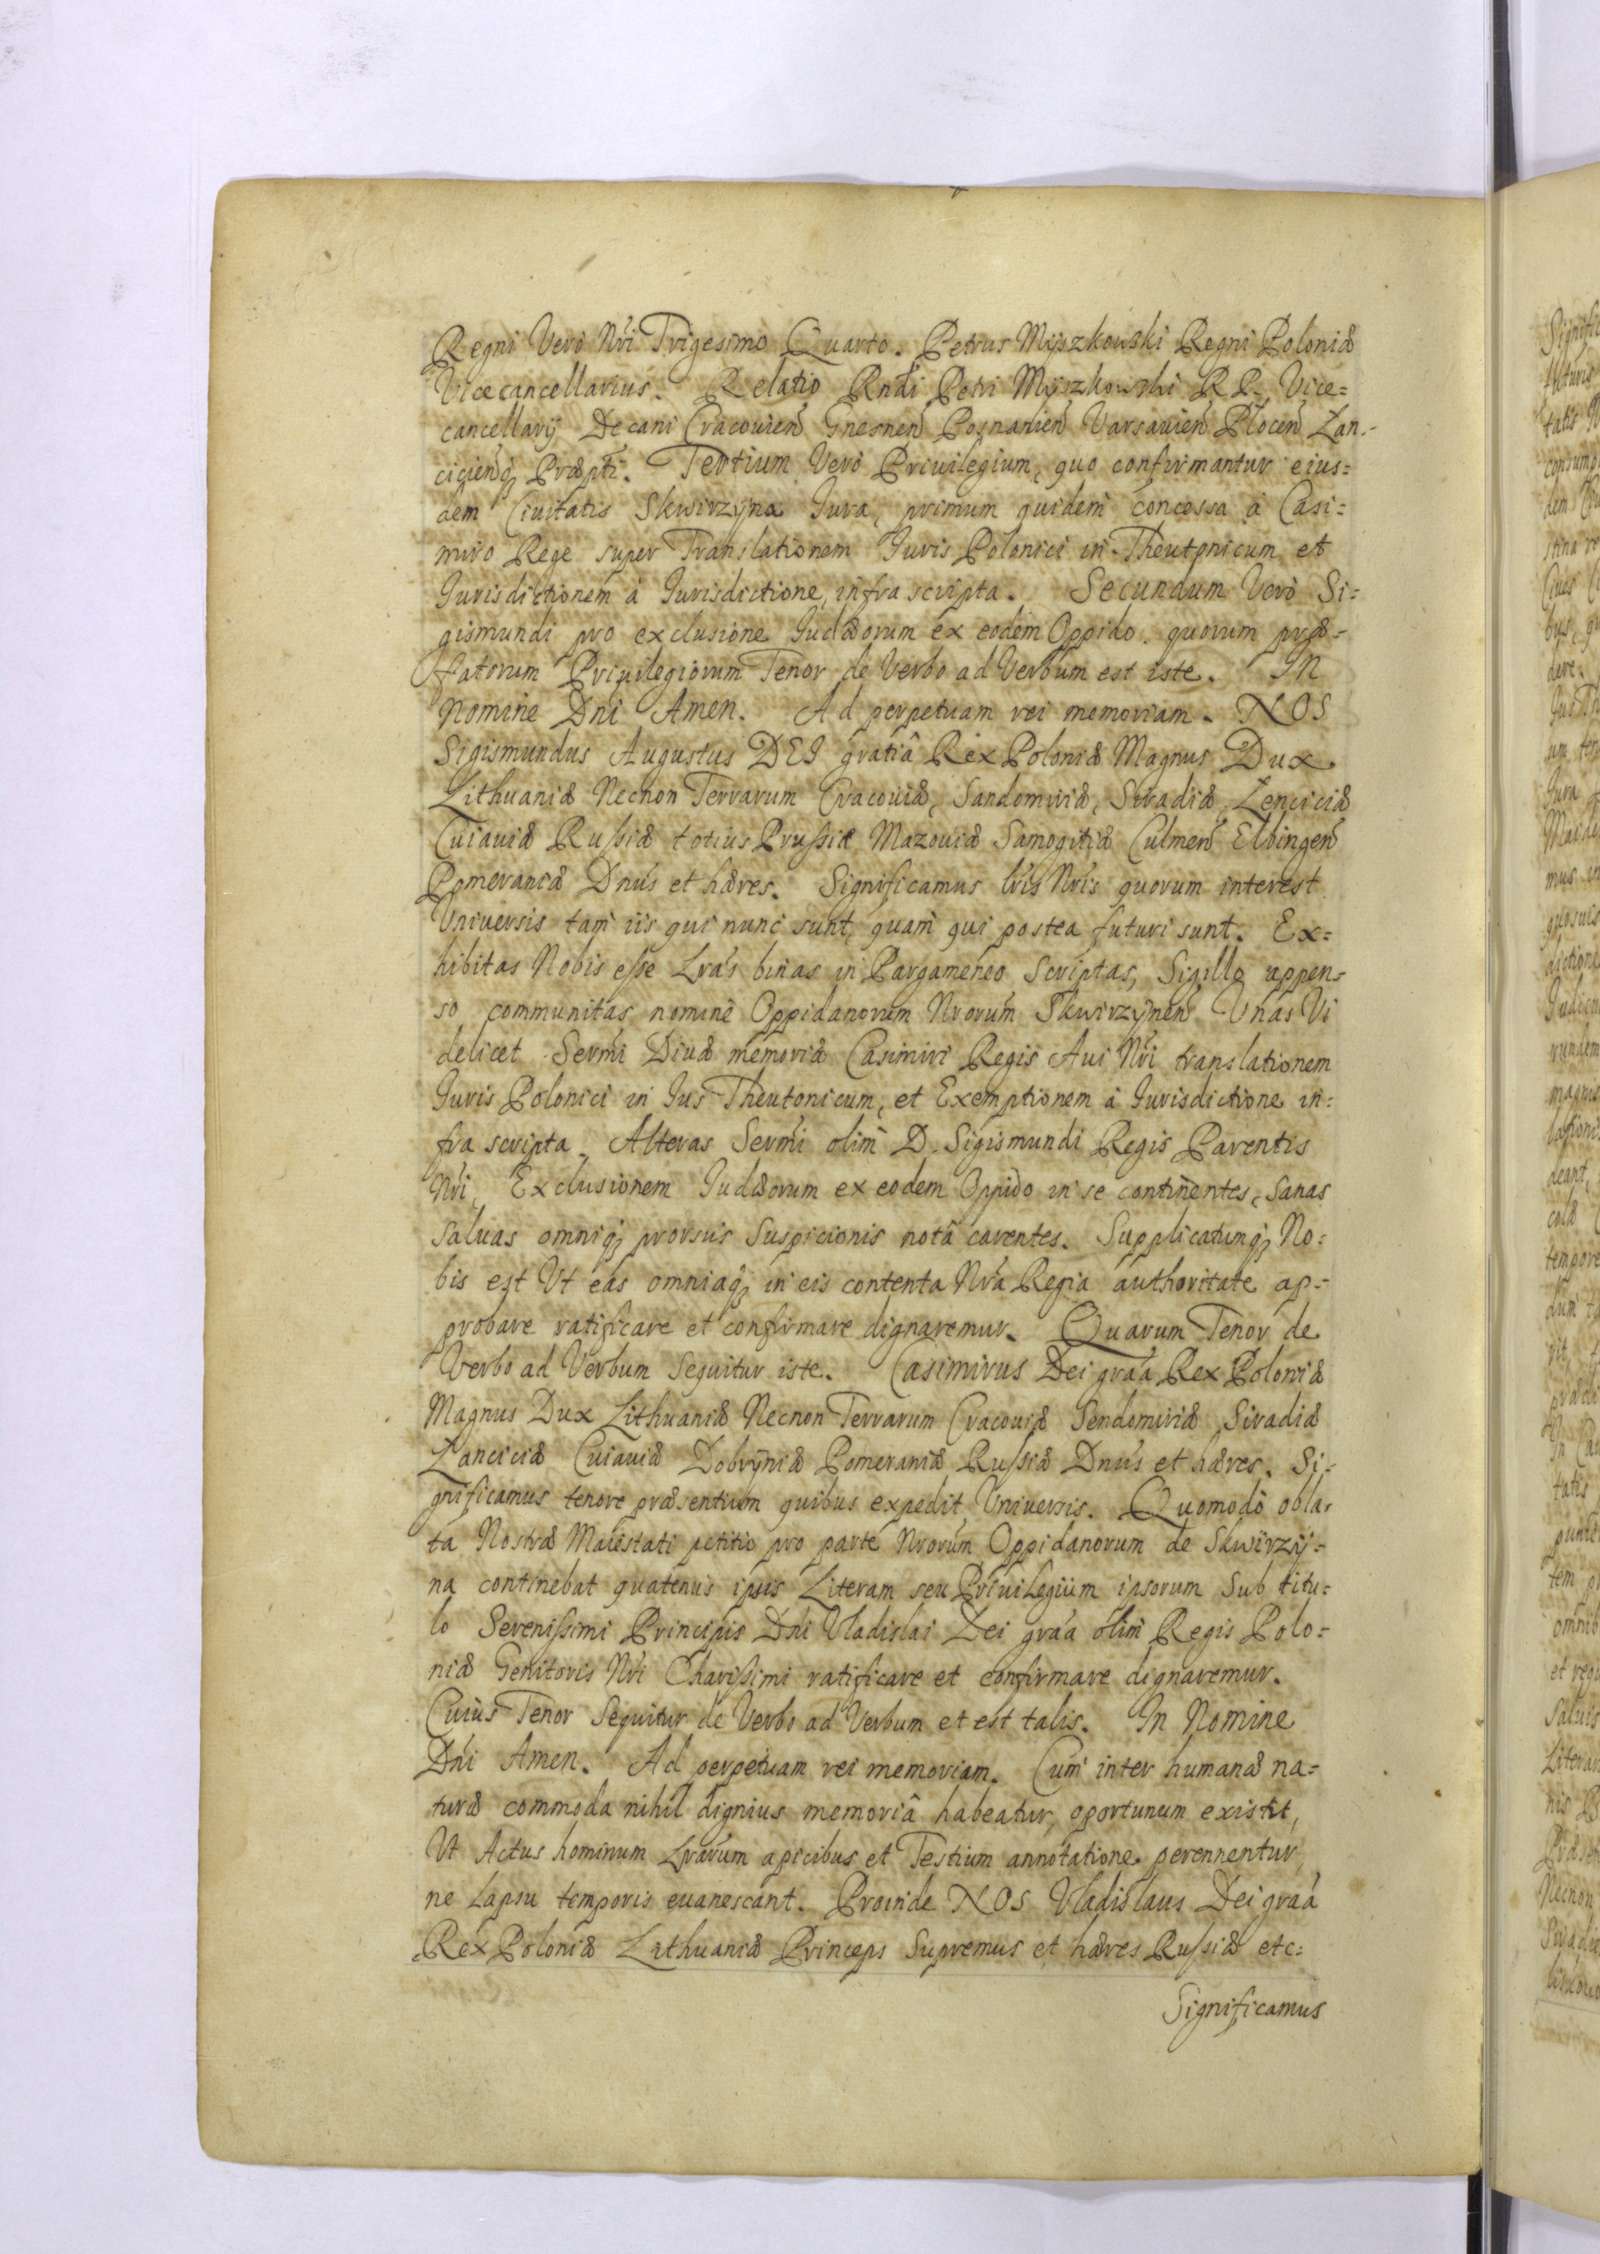 Regni Vero Nri Trigesimo Quarto. Petrus Myszkowski Regni Poloniæ
Vicecancellarius. Relatio Rndi Petri Myszkowski R P. Vice=
cancellarij Decani Cracouień Gnesneń Posnanień Varsauień Płoceń Lan=
cicieńq Præpti. Tertium Verò Priuilegium, quo confirmantur eius=
dem Ciuitatis Skwirzyna Jura, primum quidem concessa à Casi=
miro Rege super Translationem Juris Polonici in Theutonicum et
Jurisdictionem à Jurisdictione, infra scripta. Secundum Verò Si=
gismundi pro exclusione Judæorum ex eodem Oppido. quorum præ=
fatorum Priuilegiorum Tenor de Verbo ad Verbum est iste. IN
Nomine Dni Amen. Ad perpetuam rei memoriam. NOS
Sigismundus Augustus DEI gratiâ Rex Poloniæ Magnus Dux
Lithuaniæ Necnon Terrarum Cracouiæ, Sandomiriæ, Siradiæ, Lenciciæ
Cuiauiæ Russiæ totius Prussiæ Mazouiæ Samogitiæ Culmeń Elbingeń
Pomeraniæ Dnus et hæres. Significamus lris Nris quorum interest
Vniuersis tam iis qui nunc sunt, quam qui postea futuri sunt. Ex=
hibitas Nobis esse Lras binas in Pargameneo Scriptas, Sigillo appen=
so communitas nomine Oppidanorum Nrorum Skwirzyneń Vnas Vi
delicet Sermi Diuæ memoriæ Casimiri Regis Aui Nri translationem
Juris Polonici in Jus Theutonicum, et Exemptionem à Jurisdictione in=
fra scripta. Alteras Sermi olim D. Sigismundi Regis Parentis
Nri, Exclusionem Judæorum ex eodem Oppido in se continentes, Sanas
saluas omniq prorsus Suspicionis notâ carentes. Supplicatumq No=
bis est Vt eas omniaq in eis contenta Nra Regia authoritate ap=
probare ratificare et confirmare dignaremur. Quarum Tenor de
Verbo ad Verbum Sequitur iste. Casimirus Dei graa Rex Poloniæ
Magnus Dux Lithuaniæ Necnon Terrarum Cracouiæ Sendomiriæ Siradiæ
Lanciciæ Cuiauiæ Dobryniæ Pomeraniæ Russiæ Dnus et hæres. Si=
gnificamus tenore præsentium quibus expedit Vniuersis. Quomodò obla=
ta Nostræ Maiestati petitio pro parte Nrorum Oppidanorum de Skwirzy=
na continebat quatenus ipsis Literam seu Priuilegium ipsorum Sub titu=
lo Serenissimi Principis Dni Vladislai Dei graa olim Regis Polo=
niæ Genitoris Nri Charissimi ratificare et confirmare dignaremur.
Cuius Tenor Sequitur de Verbo ad Verbum et est talis. In Nomine
Dni Amen. Ad perpetuam rei memoriam. Cum inter humanæ na=
turæ commoda nihil dignius memoriâ habeatur, oportunum existit,
Vt Actus hominum Lrarum apicibus et Testium annotatione perennentur,
ne Lapsu temporis euanescant. Proinde NOS Vladislaus Dei graa
Rex Poloniæ Lithuaniæ Princeps Supremus et hæres Russiæ etc=
Significamus